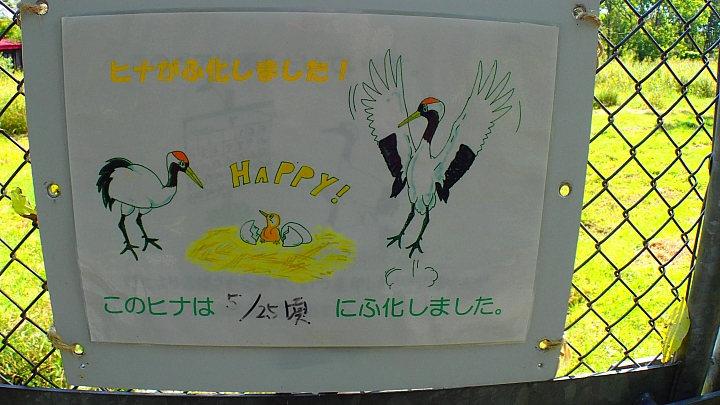 ヒナがふ化しました！
HAPPY!
このヒナは 5/25頃 にふ化しました。